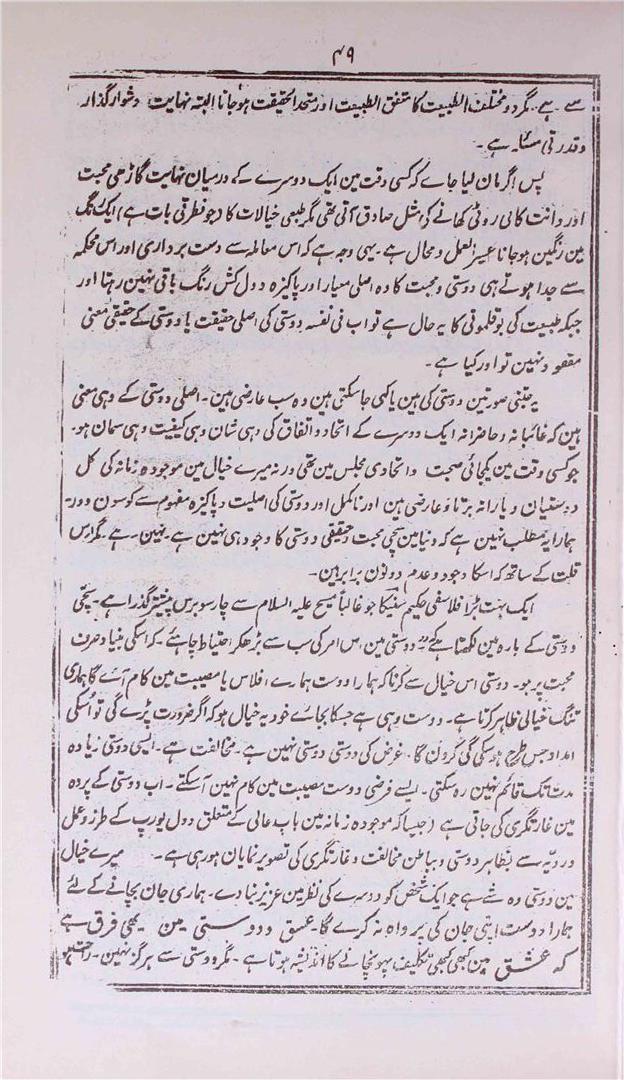 ۴۹
سے ہے۔ مگر دو مختلف الطبیعت کا متفق الطبیعت اور متحد الحقیقت ہو جانا البتہ نہایت دشوار گذار
و قدرتی مسئلہ ہے۔
پس اگر مان لیا جاے کہ کسی وقت مین ایک دوسرے کے درمیان نہایت گاڑھی محبت
اور دانت کاٹی روٹی کھانے کی مثل صادق آتی تھی مگر طبعی خیالات کا (جو فطرتی بات ہے) ایک رنگ
مین رنگین ہو جانا عسیر العمل و محال ہے۔ یہی وجہ ہے کہ اس معاملہ سے دست برداری اور اس محکمہ
سے جدا ہوتے ہی دوستی و محبت کا وہ اصلی معیار اور پاکیزہ و دل کش رنگ باقی نہین رہتا اور
جبکہ طبیعت کی بوقلمونی کا یہ حال ہے تو اب فی نفسہ دوستی کی اصلی حقیقت یا دوستی کے حقیقی معنی
مفقود نہین تو اور کیا ہے۔
یہ جتنی صورتین دوستی کی ہین یا کہی جا سکتی ہین وہ سب عارضی ہین۔ اصلی دوستی کے وہی معنی
ہین کہ غائبانہ و حاضرانہ ایک دوسرے کے اتحاد و اتفاق کی وہی شان وہی کیفیت وہی سمان ہو۔
جو کسی وقت مین یکجائی صحبت و اتحادی مجلس مین تھی ورنہ میرے خیال مین موجودہ زمانہ کی کل
دوستیان و یارانہ برتاو عارضی ہین اور نامکمل اور دوستی کی اصلیت و پاکیزہ مفہوم سے کوسون دور۔
ہمارا یہ مطلب نہین ہے کہ دنیا مین سچی محبت و حقیقی دوستی کا وجود ہی نہین ہے۔ نہین۔ ہے۔ مگر اس
قلت کے ساتھ کہ اسکا وجود و عدم دونون برابر ہین۔
ایک بہت بڑا فلاسفی حکیم سنیکا جو غالباً مسیح علیہ السلام سے چار سو برس پیشتر گذرا ہے۔ سچّی
دوستی کے بارہ مین لکھتا ہے کہ دوستی مین اس امر کی سب سے بڑھکر احتیاط چاہئے۔ کہ اسکی بنیاد صرف
محبت پر ہو۔ دوستی اس خیال سے کرنا کہ ہمارا دوست ہمارے افلاس یا مصیبت مین کام آے گا ہماری
تنگ خیالی ظاہر کرتا ہے۔ دوست وہی ہے جسکا بجاے خود یہ خیال ہو کہ اگر ضرورت پڑے گی تو اُسکی
امداد جس طرح ہو سکی گی کرون گا۔ غرض کی دوستی دوستی نہین ہے۔ مخالفت ہے۔ ایسی دوستی زیادہ
مدت تک قائم نہین رہ سکتی۔ ایسے فرضی دوست مصیبت مین کام نہین آسکتے۔ اب دوستی کے پردہ
مین غارتگری کی جاتی ہے (جیسا کہ موجودہ زمانہ مین باب عالی کے متعلق دول یورپ کے طرز و عمل
و رویّہ سے بظاہر دوستی و بباطن مخالفت و غارتگری کی تصویر نمایان ہو رہی ہے۔ میرے خیال
مین دوستی وہ شے ہے جو ایک شخص کو دوسرے کی نظر مین عزیز بنا دے۔ ہماری جان بچانے کے لئے
ہمارا دوست اپنی جان کی پرواہ نہ کرے گا۔ عشق و دوستی مین یہی فرق ہے
کہ عشق مین کبھی کبھی تکلیف پہونچانے کا اندیشہ ہوتا ہے۔ مگر دوستی سے ہرگز نہین۔